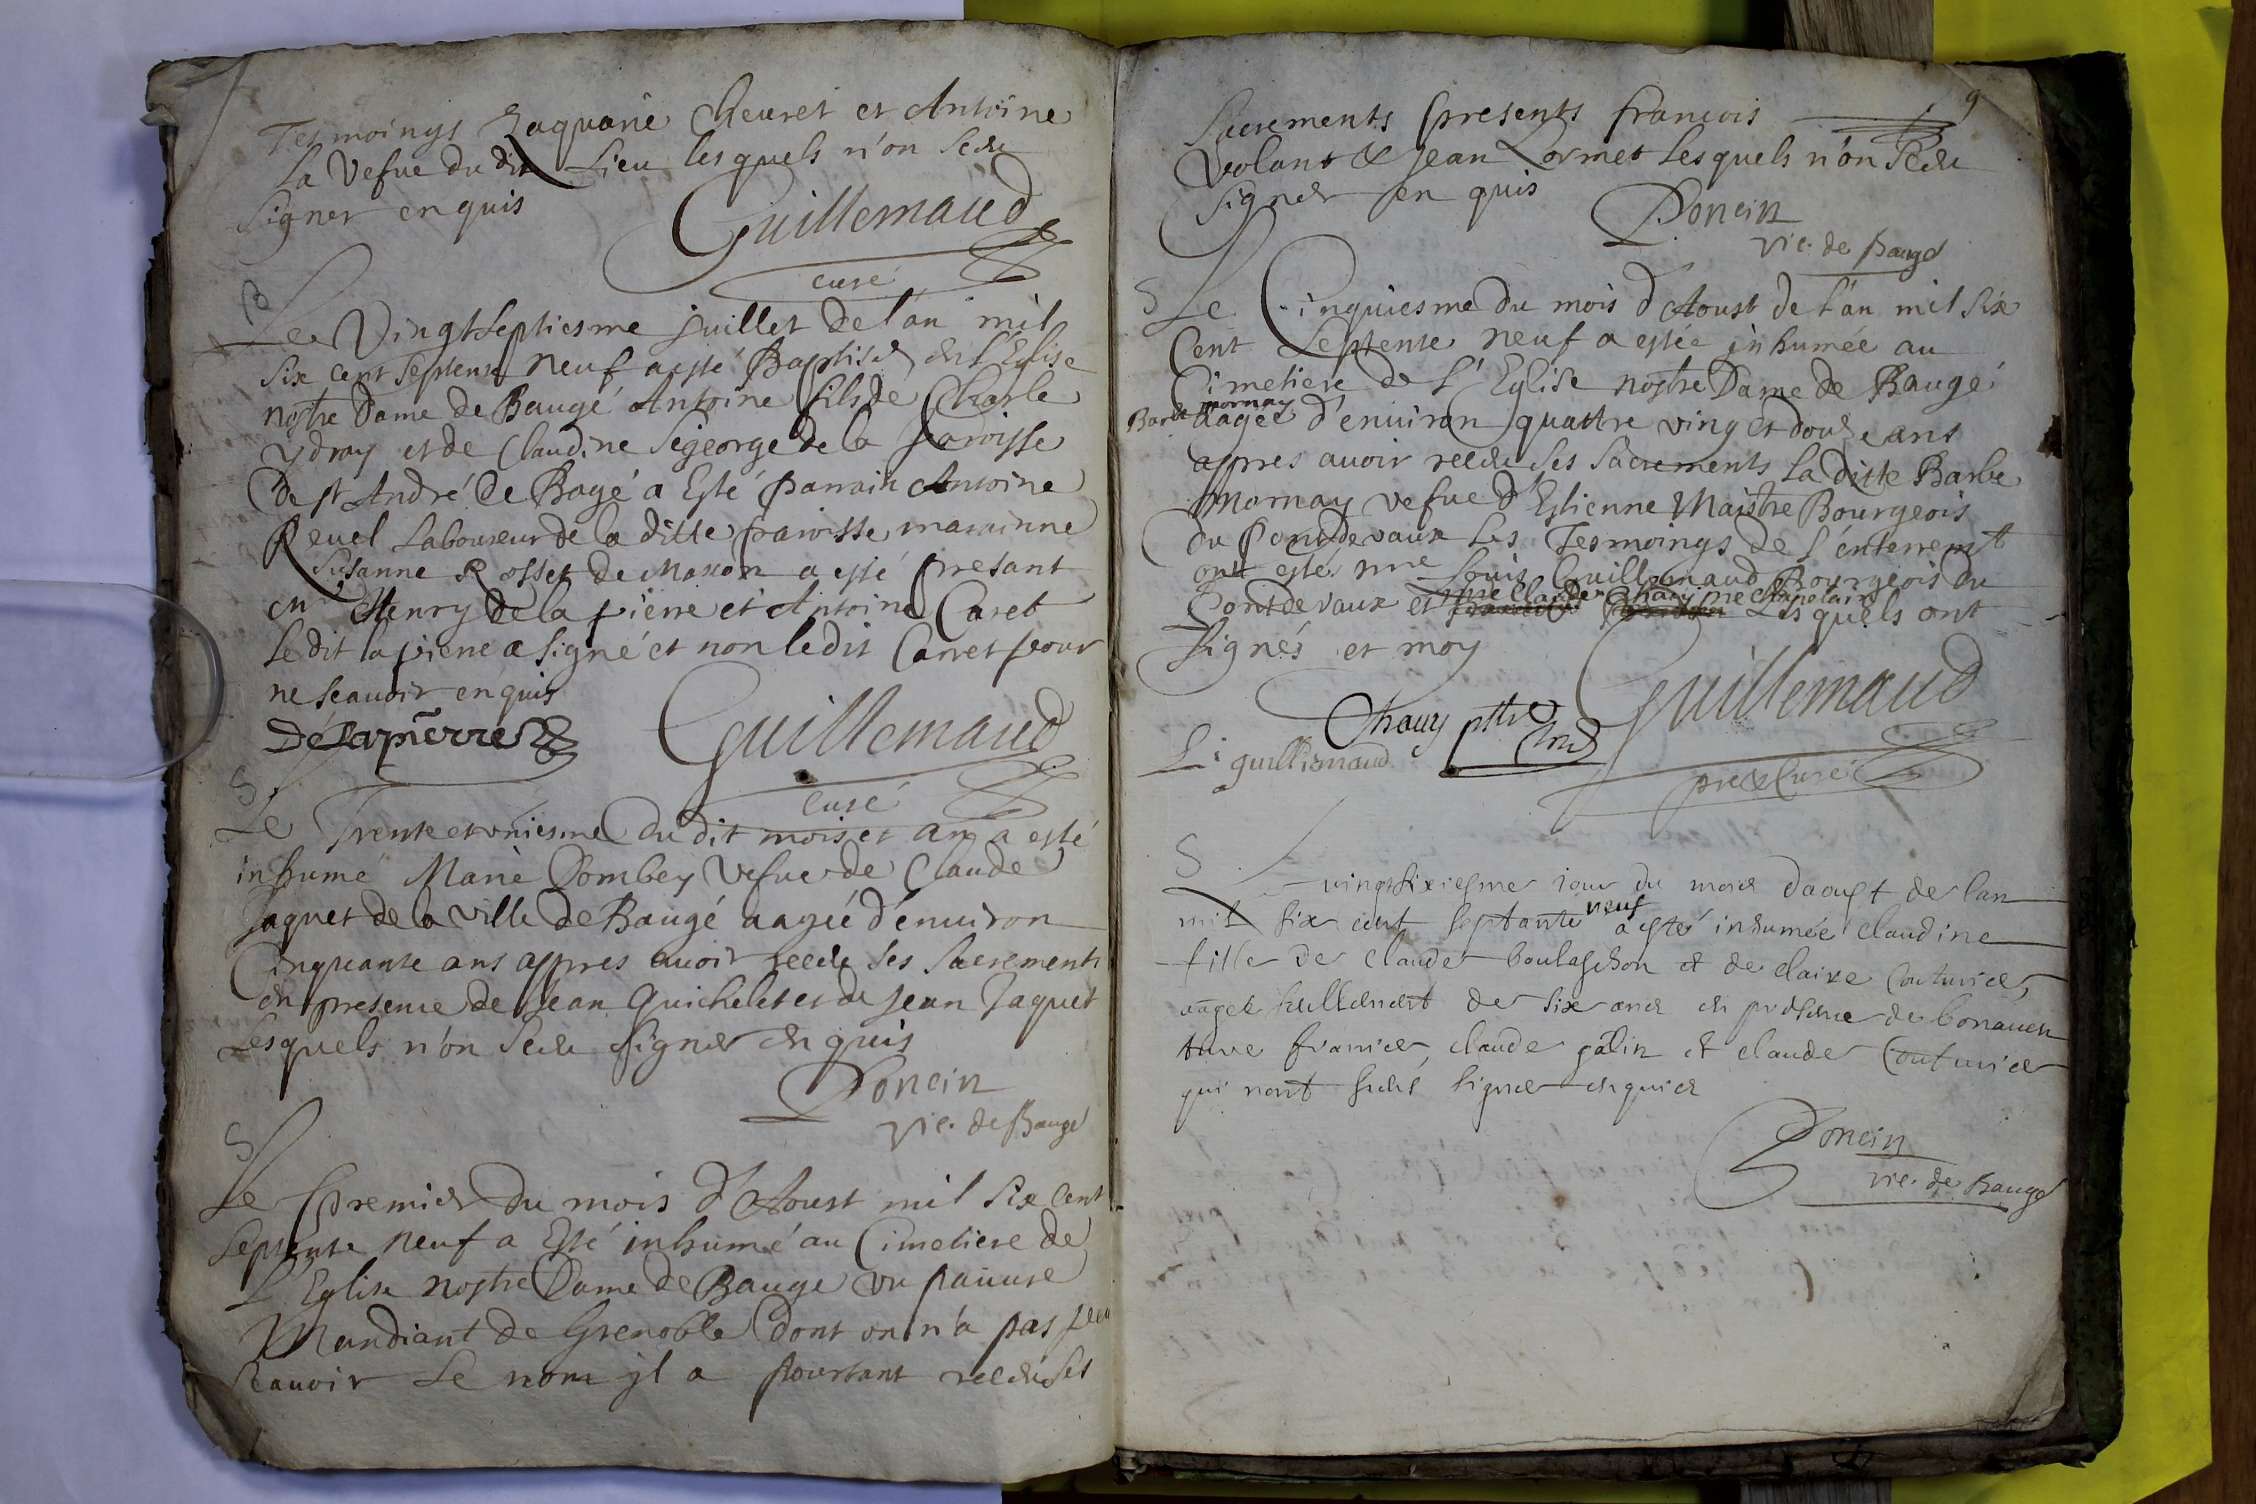 Tesmoings Zaquarie Cheuret et Antoine
La Vefue du dit Lieu lesquels n'on sceu
signer enquis
Guillemaud
curé
B
Le Vingt septiesme juillet de l'an mil
six cent septente neuf a esté Baptisé en l'Eglise
nostre Dame de Baugé Antoine fils de Charle
ydray et de Claudine Segeorge de la paroisse
de st André de Bagé a Esté parrain Antoine
Reuel Laboureur de la ditte paroisse maraine
Susanne Rosset de Mascon a esté presant
Henry de la pierre et Antoine Caret
Le dit lapierre a signé et non ledit Carret pour
ne scauoir enquis
Delapierre
Guillemaud
curé
S
Le Trente et vniesme du dit mois et an a esté
inhumé Marie Dombey Vefue de Claude
Jaquet de la ville de Baugé aagée d'enuiron
Cinquante ans appres auoir receu ses sacrements
en presence de Jean Guichelet et de Jean Jaquet
Lesquels n'on sceu signer enquis
Poncin
vic. de Baugé
S
Le premier du mois d'Aoust mil six cent
septente neuf a Esté inhumé au Cimetiere de
L'Eglise nostre Dame de Bauge vn pauure
Mandiant de Grenoble dont on n'a pas peu
scauoir Le nom jl a pourtant receu ses
9
Sacrements presents francois
Volant & Jean Lormet Lesquels n'on sceu
signer en quis
Poncin
vic. de Baugé
S
Le Cinquiesme du mois d'Aoust de l'an mil six
Cent septente neuf a estée inhumée au
Cimetiere de l'Eglise nostre Dame de Baugé
Barbe mornay aagée d'enuiron quattre vingt et douze ans
appres auoir receu ses sacrements la ditte Barbe
Mornay vefue d'Estienne Maistre Bourgeois
du Pontdevaux Les Tesmoings de l'enterremt
ont estés mre Louis Guillemaud Bourgeois du
Pontdevaux et mre Claude Chauy pre chapelain Lesquels ont
signés et moy
Chauy pttre
L: guillemaud
Guillemaud
pre & Curé
S
Le vingtsixiesme iour du mois daoust de lan
mil six cent septante neuf a esté inhumée claudine
fille de claude boulaschon et de claire Couturier,
aagee seullement de six ans en presence de bonauen
ture francier, claude galin et claude Couturier
qui nont sceus signer enquis
Poncin
vic. de Baugé